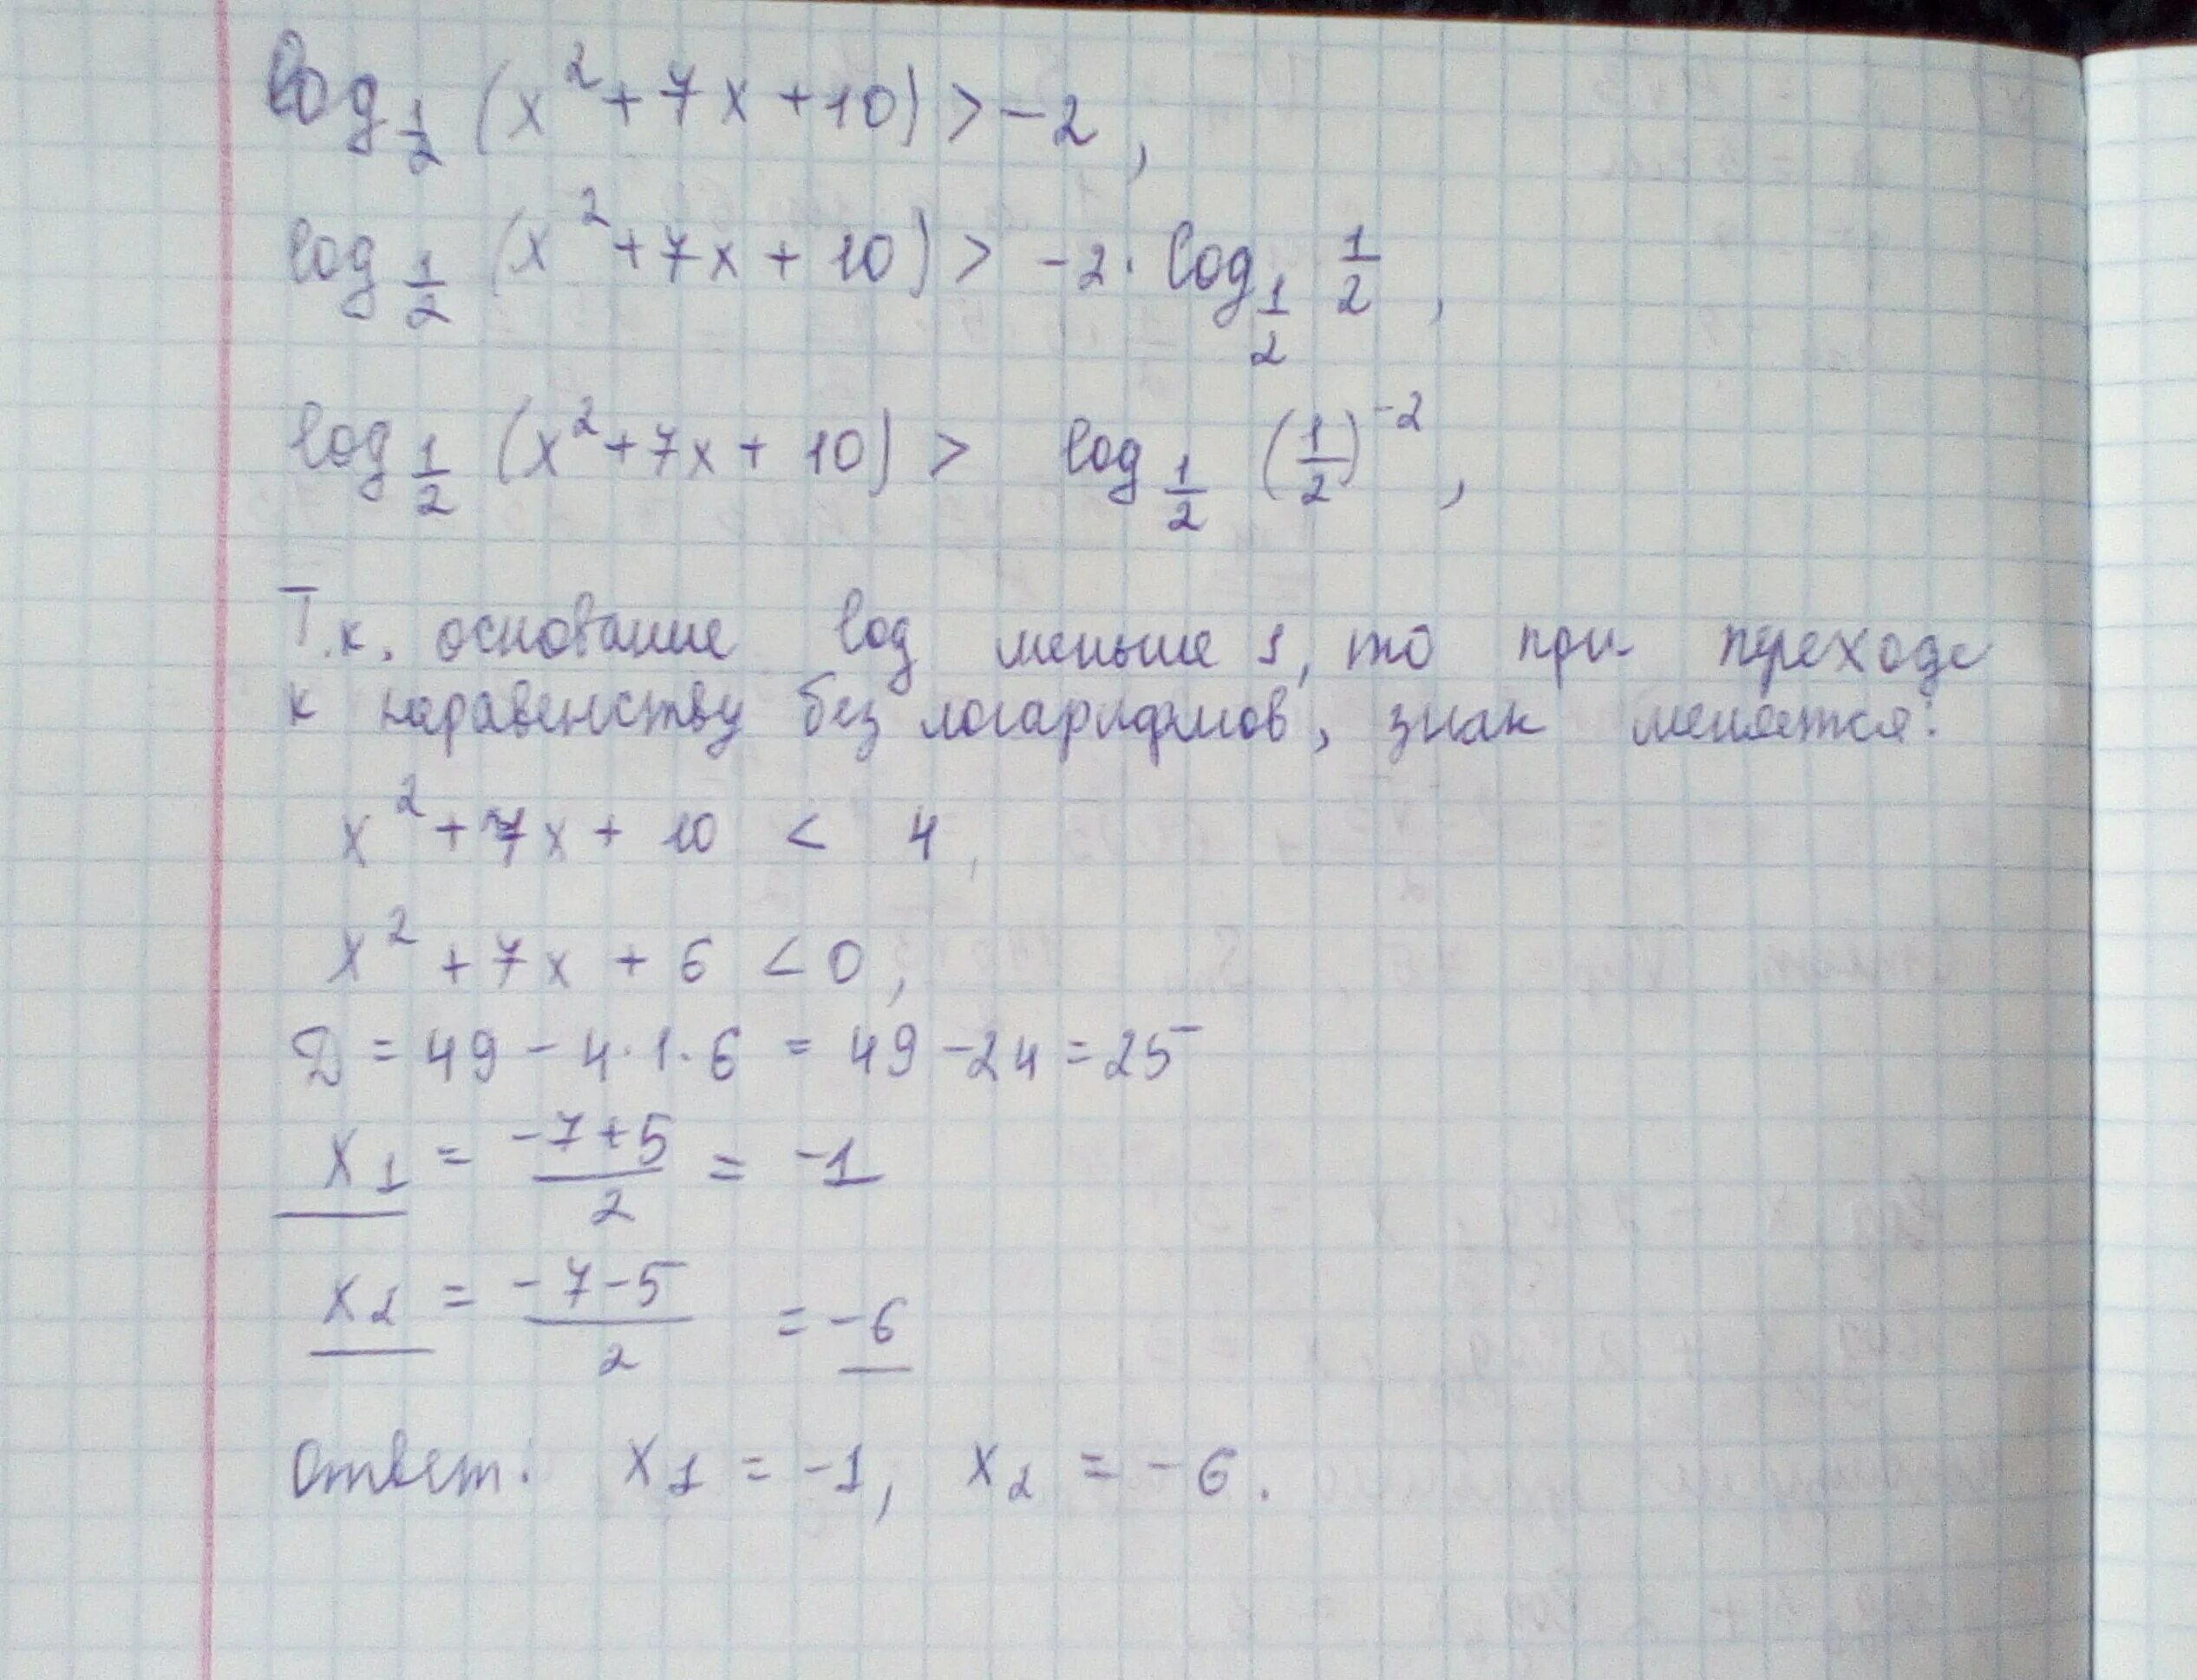 log_{1/2} (x² + 7x + 10) > -2,
log_{1/2} (x² + 7x + 10) > -2 · log_{1/2} 1/2,
log_{1/2} (x² + 7x + 10) > log_{1/2} (1/2)⁻²,
Т.к. основание log меньше 1, то при переходе
к неравенству без логарифмов, знак меняется:
x² + 7x + 10 < 4,
x² + 7x + 6 < 0,
D = 49 - 4·1·6 = 49 - 24 = 25
x₁ = (-7+5)/2 = -1
x₂ = (-7-5)/2 = -6
Ответ: x₁ = -1, x₂ = -6.